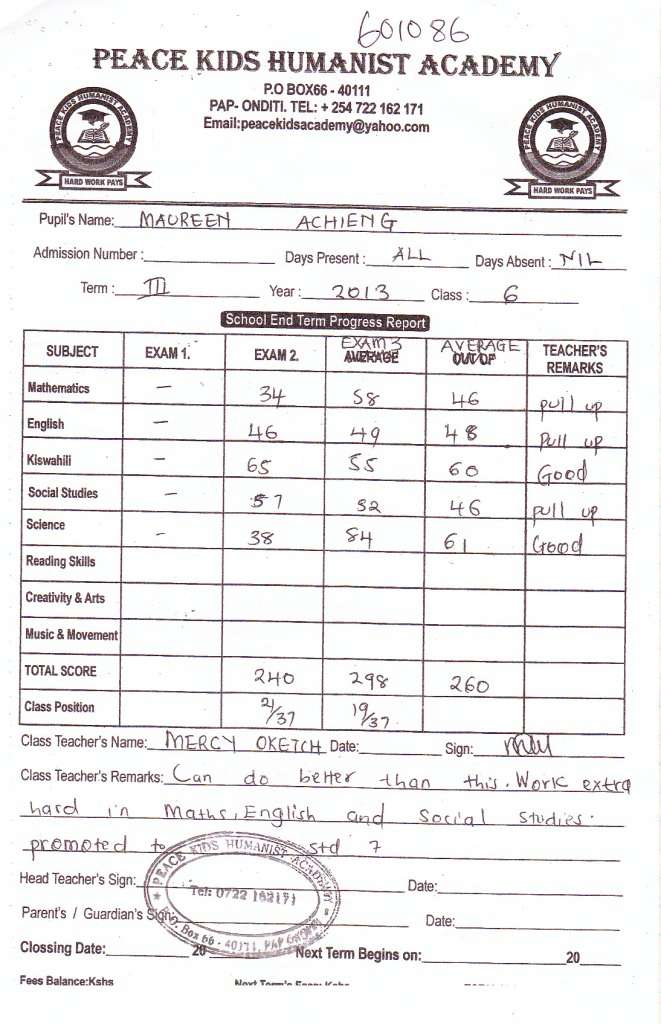 601086
PEACE KIDS HUMANIST ACADEMY
P.O BOX66 - 40111
PAP- ONDITI. TEL: + 254 722 162 171
Email:peacekidsacademy@yahoo.com
PEACE KIDS HUMANIST ACADEMY
HARD WORK PAYS
PEACE KIDS HUMANIST ACADEMY
HARD WORK PAYS
Pupil's Name: MAUREEN ACHIENG
Admission Number : Days Present : ALL Days Absent : NIL
Term : III Year : 2013 Class : 6
School End Term Progress Report
SUBJECT EXAM 1. EXAM 2. EXAM 3 AVERAGE AVERAGE OUT OF TEACHER'S REMARKS
Mathematics – 34 58 46 pull up
English – 46 49 48 Pull up
Kiswahili – 65 55 60 Good
Social Studies – 57 52 46 pull up
Science – 38 84 61 Good
Reading Skills
Creativity & Arts
Music & Movement
TOTAL SCORE 240 298 260
Class Position 21/37 19/37
Class Teacher's Name: MERCY OKETCH Date: Sign:
Class Teacher's Remarks: Can do better than this. Work extra
hard in Maths, English and Social studies.
promoted to std 7
Head Teacher's Sign: Date:
Parent's / Guardian's Sign: Date:
Clossing Date: 20 Next Term Begins on: 20
PEACE KIDS HUMANIST ACADEMY
Tel: 0722 162171
P.O. Box 66 - 40111, PAP ONDITI
Fees Balance:Kshs Next Term's Fees: Kshs